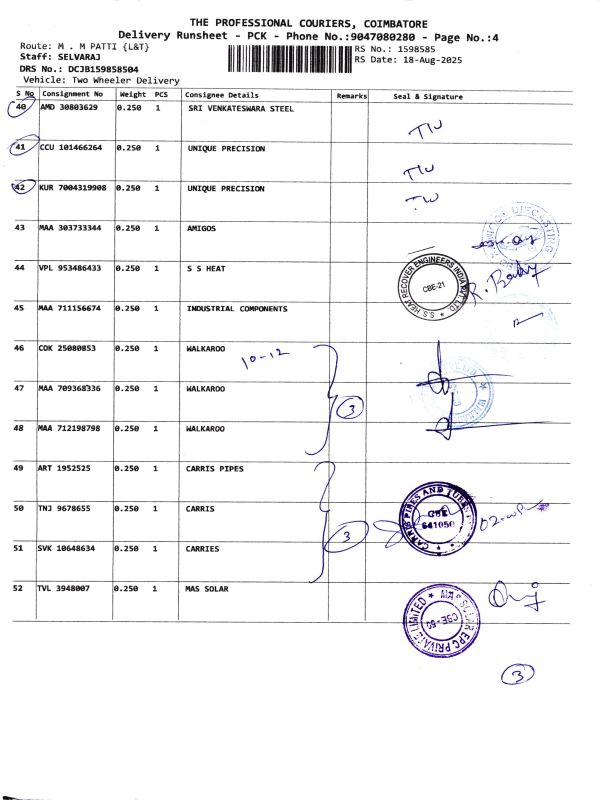 THE PROFESSIONAL COURIERS, COIMBATORE
Delivery Runsheet - PCK - Phone No.:9047080280 - Page No.:4
Route: M . M PATTI {L&T} RS No.: 1598585
Staff: SELVARAJ RS Date: 18-Aug-2025
DRS No.: DCJB159858504
Vehicle: Two Wheeler Delivery
S No Consignment No Weight PCS Consignee Details Remarks Seal & Signature
40 AMD 30803629 0.250 1 SRI VENKATESWARA STEEL
41 CCU 101466264 0.250 1 UNIQUE PRECISION
42 KUR 7004319908 0.250 1 UNIQUE PRECISION
43 MAA 303733344 0.250 1 AMIGOS
44 VPL 953486433 0.250 1 S S HEAT
S.S. HEAT RECOVER ENGINEERS INDIA PVT. LTD. CBE-21
45 MAA 711156674 0.250 1 INDUSTRIAL COMPONENTS
46 COK 25080853 0.250 1 WALKAROO
10-12
47 MAA 709368336 0.250 1 WALKAROO
3
48 MAA 712198798 0.250 1 WALKAROO
49 ART 1952525 0.250 1 CARRIS PIPES
50 TNJ 9678655 0.250 1 CARRIS
CARRIS PIPES AND TUBES CBE 641050
3
51 SVK 10648634 0.250 1 CARRIES
52 TVL 3948007 0.250 1 MAS SOLAR
MAS SOLAR EPC PRIVATE LIMITED CBE-50
3